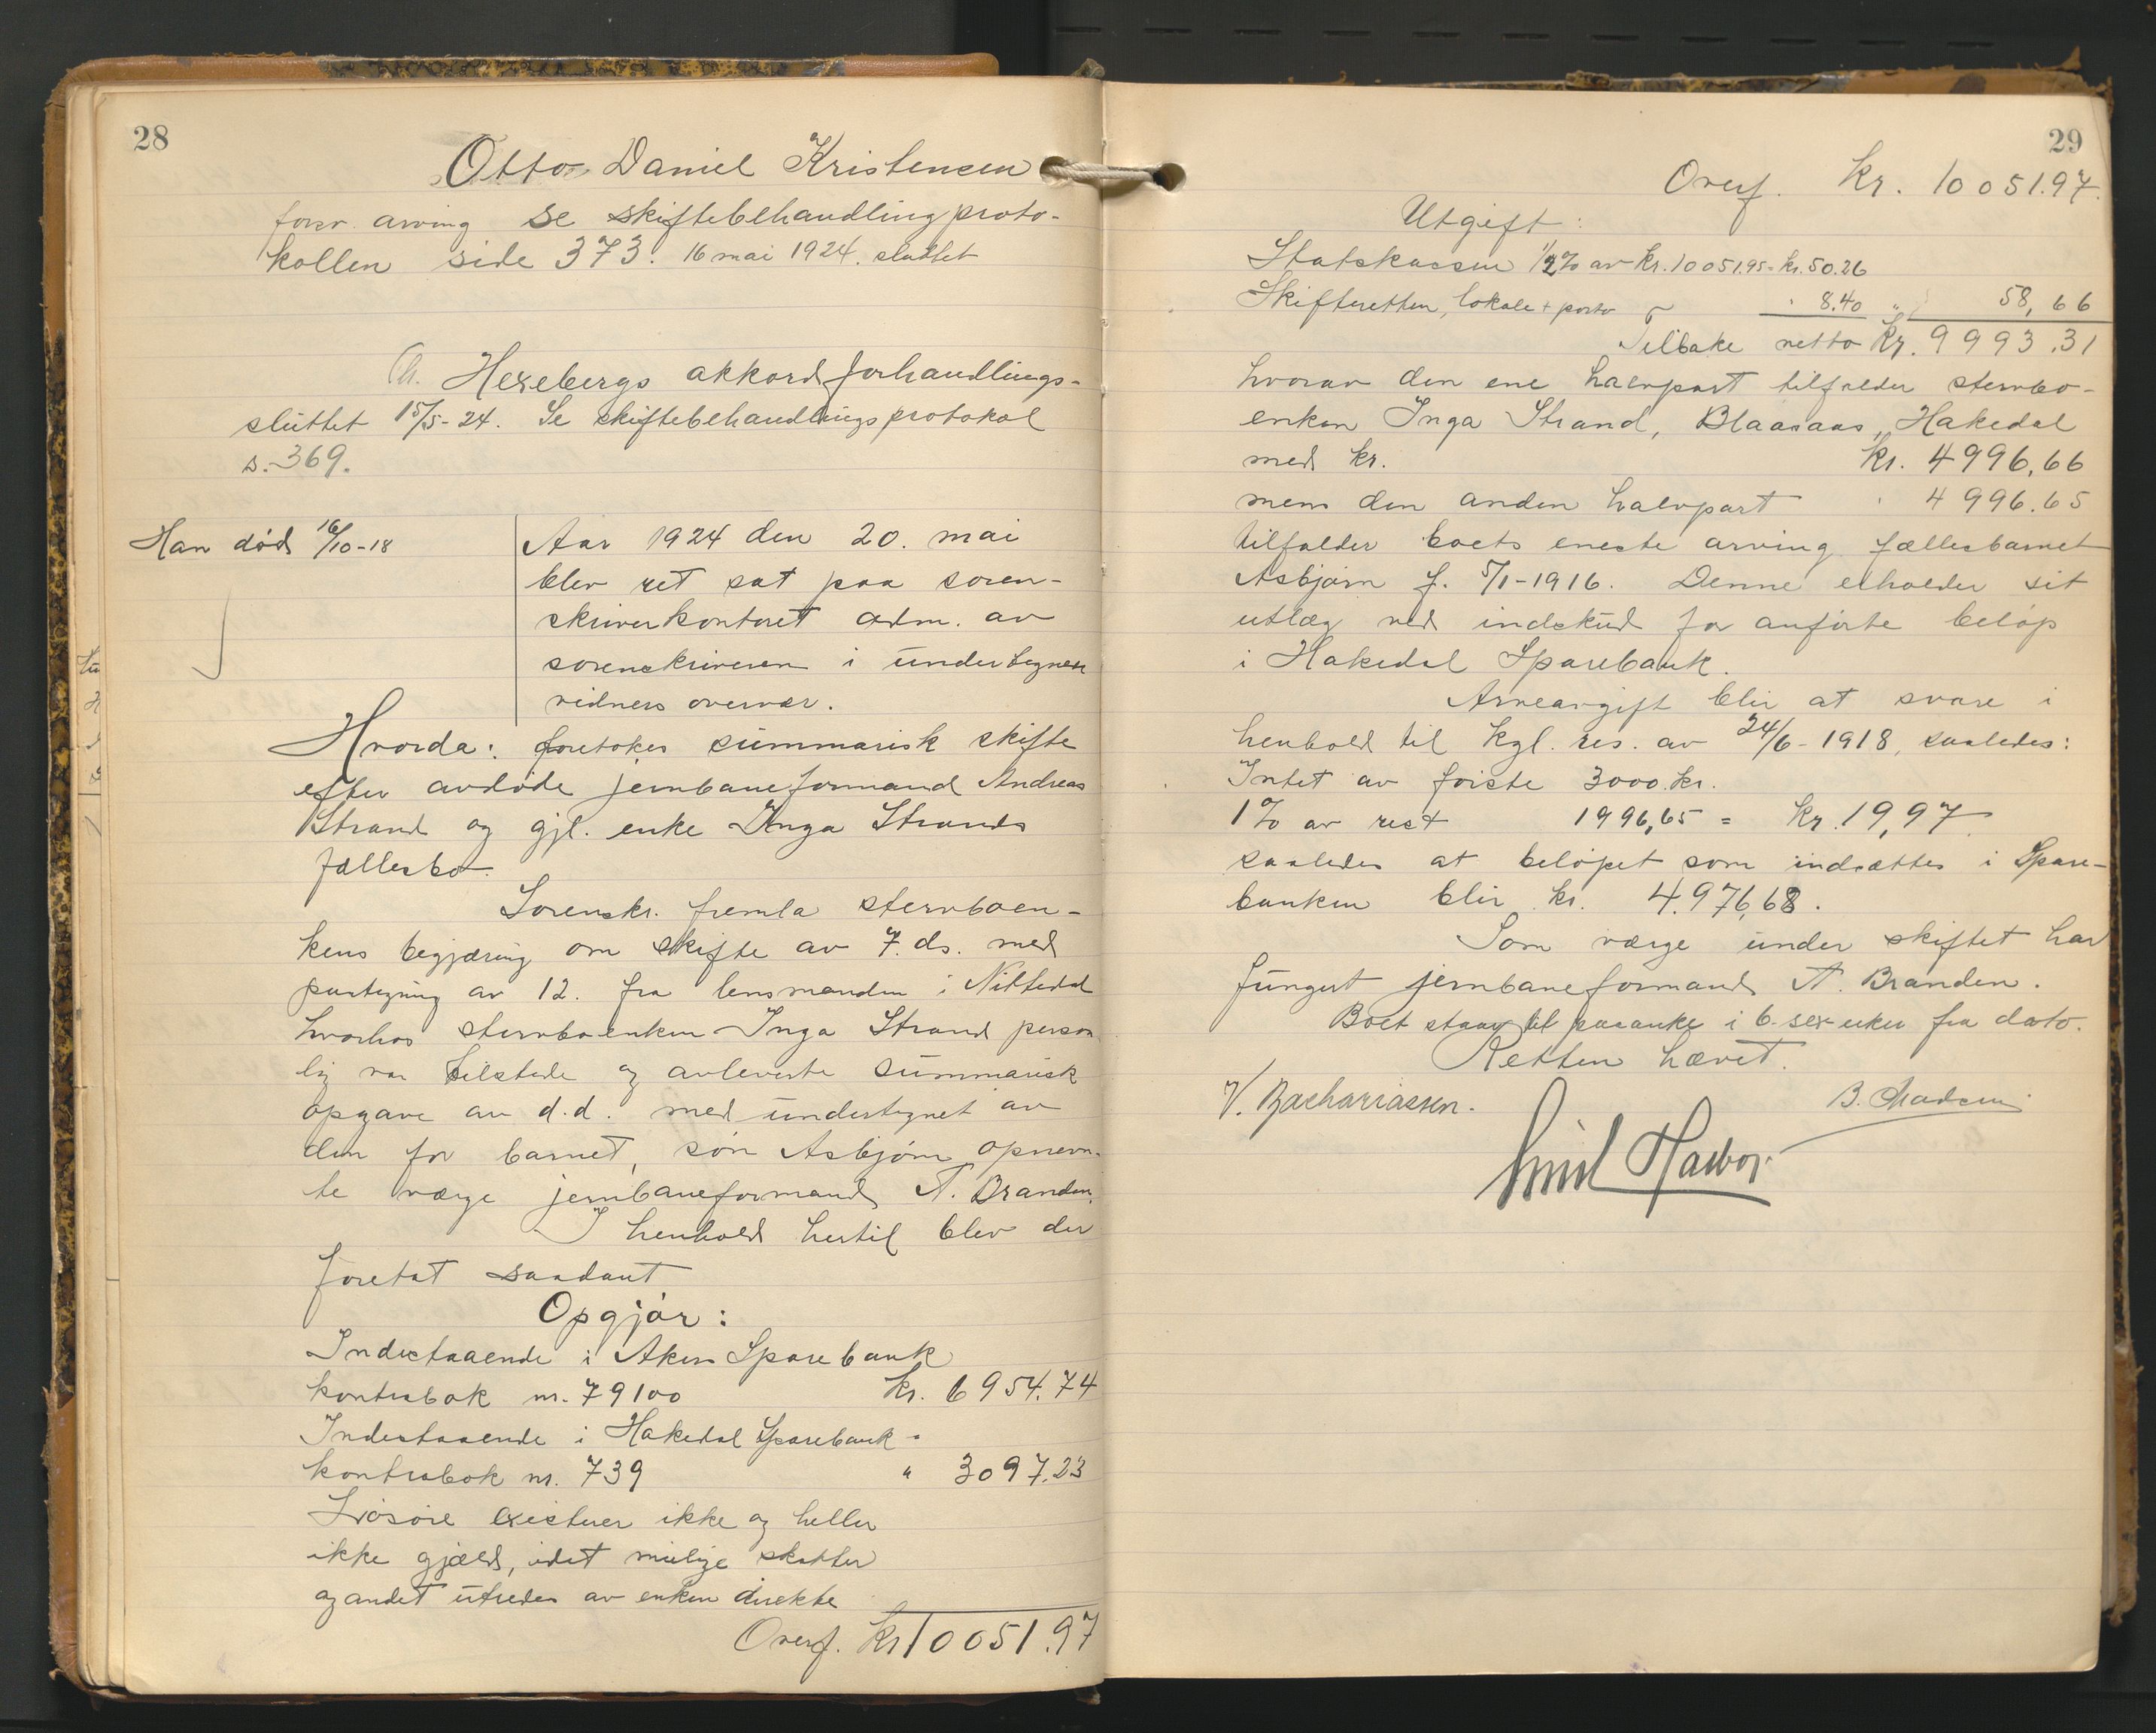 28
Otto Daniel Kristensen
forsv. arving se skiftebehandlingproto-
kollen side 373. 16 mai 1924. sluttet
Ch. Hexebergs akkordforhandlings-
sluttet 15/5-24. Se skiftebehandlingsprotokol
s. 369.
Han død 16/10-18
Aar 1924 den 20. mai
blev ret sat paa soren-
skriverkontoret adm. av
sorenskriveren i undertegnede
vidners overvær.
Hvorda: foretokes summarisk skifte
efter avdøde jernbaneformand Andreas
Strand og gjl. enke Inga Strands
fællesbo.
Sorenskr. fremla stervboen-
kens begjæring om skifte av 7. ds. med
paategning av 12. fra lensmanden i Nittedal
hvorhos stervboenken Inga Strand person
lig var tilstede og avleverte summarisk
opgave av d.d. med undertegnet av
den for barnet, søn Asbjørn opnevn-
te verge jernbaneformand A. Branden.
I henhold hertil blev der
foretat saadant
Opgjør:
Indestaaende i Aker Sparebank
kontrabok nr. 79100 kr. 6954.74
Indestaaende i Hakedal Sparebank
kontrabok nr. 739 " 3097.23
Løsøre existerer ikke og heller
ikke gjæld, idet mulige skatter
og andet utredes av enken direkte
Overf. kr 10051.97
29
Overf. Kr. 10051.97.
Utgift:
Statskassen 1/2% av kr. 10051.95 = kr. 50.26
Skifteretten, lokale + porto " 8.40 " 58,66
Tilbake netto Kr. 9993.31
hvorav den ene halvpart tilfalder stervbo-
enken Inga Strand, Blaasaas, Hakedal
med kr. Kr. 4996,66
mens den anden halvpart " 4996.65
tilfalder boets eneste arving fællesbarnet
Asbjørn f. 5/1-1916. Denne erholder sit
utlæg ved indskud for anførte beløp
i Hakedal Sparebank.
Arveavgift blir at svare i
henhold til kgl. res. av 24/6-1918, saaledes:
Intet av første 3000 kr.
1% av rest 1996,65 = Kr. 19,97
saaledes at beløpet som indsættes i Spare-
banken blir kr. 4.976,68.
Som værge under skiftet har
fungert jernbaneformand A. Branden.
Boet staar til paaanke i 6 sex uker fra dato.
Retten hævet.
V. Zachariassen. B. Madsen
Emil